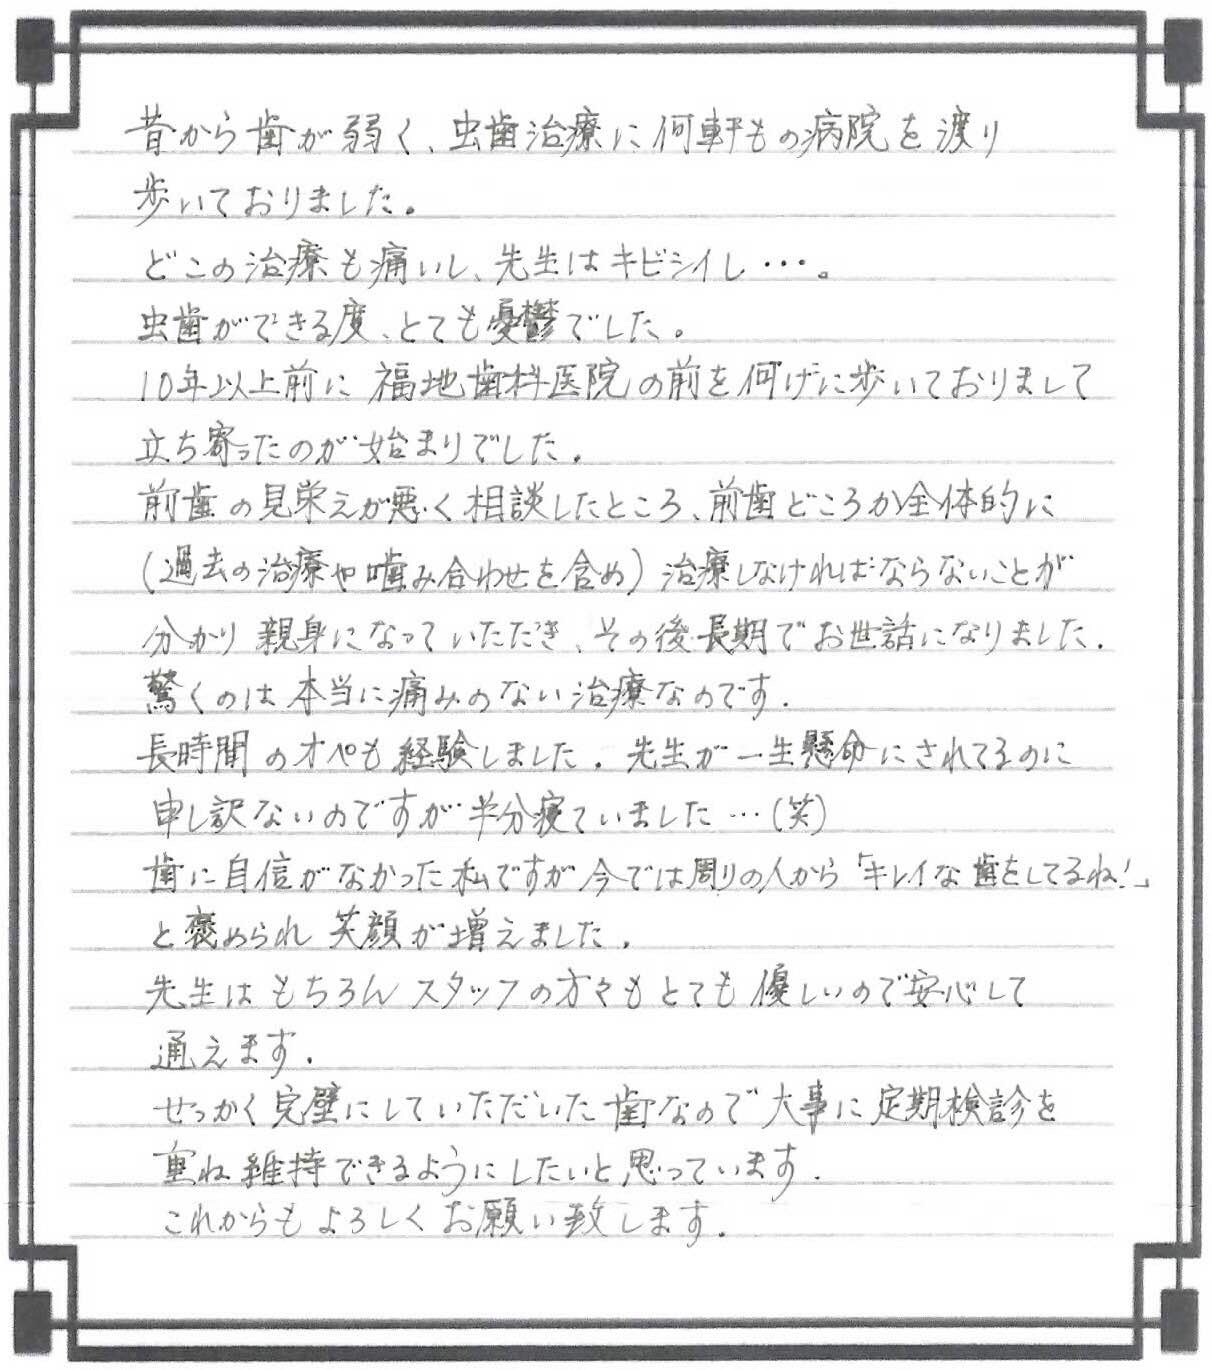 昔から歯が弱く、虫歯治療に何軒もの病院を渡り
歩いておりました。
どこの治療も痛いし、先生はキビシイし…。
虫歯ができる度、とても憂鬱でした。
10年以上前に福地歯科医院の前を何げに歩いておりまして
立ち寄ったのが始まりでした。
前歯の見栄えが悪く相談したところ、前歯どころか全体的に
(過去の治療や噛み合わせを含め)治療しなければならないことが
分かり親身になっていただき、その後長期でお世話になりました.
驚くのは本当に痛みのない治療なのです.
長時間のオペも経験しました.先生が一生懸命にされてるのに
申し訳ないのですが半分寝ていました…(笑)
歯に自信がなかった私ですが今では周りの人から「キレイな歯をしてるね!」
と褒められ笑顔が増えました.
先生はもちろんスタッフの方々もとても優しいので安心して
通えます.
せっかく完璧にしていただいた歯なので大事に定期検診を
重ね維持できるようにしたいと思っています.
これからもよろしくお願い致します.